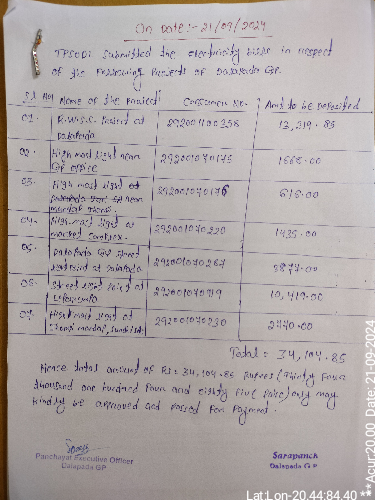 On Date:- 21/09/2024
TPSODL Submitted the electricity bills in respect
of the Following Projects of Dalapada G.P.
Sl. No Name of the Project Consumer No. Amt to be Deposited
01. R.W.S.S. Project at Dalapada 292001100358 13,219.85
02. High mast light near GP office 292001070175 1668.00
03. High mast light at near 292001070176 618.00
04. High mast light at market complex. 292001070220 1435.00
05. Dalapada G.P street at Dalapada 292001070267 3877.00
06. Street light at 292001070719 10,419.00
07. High mast light at 292001070730 2770.00
Total = 34,104.85
Hence total amount of Rs: 34,104.85 Rupees (Thirty Four
thousand one hundred Four and eighty Five (paise) only may
kindly be approved and passed for Payment.
Panchayat Executive Officer
Dalapada GP
Sarapanch
Dalapada G P
Lat:Lon-20.44:84.40 **Acur:20.00 Date, 21-09-2024